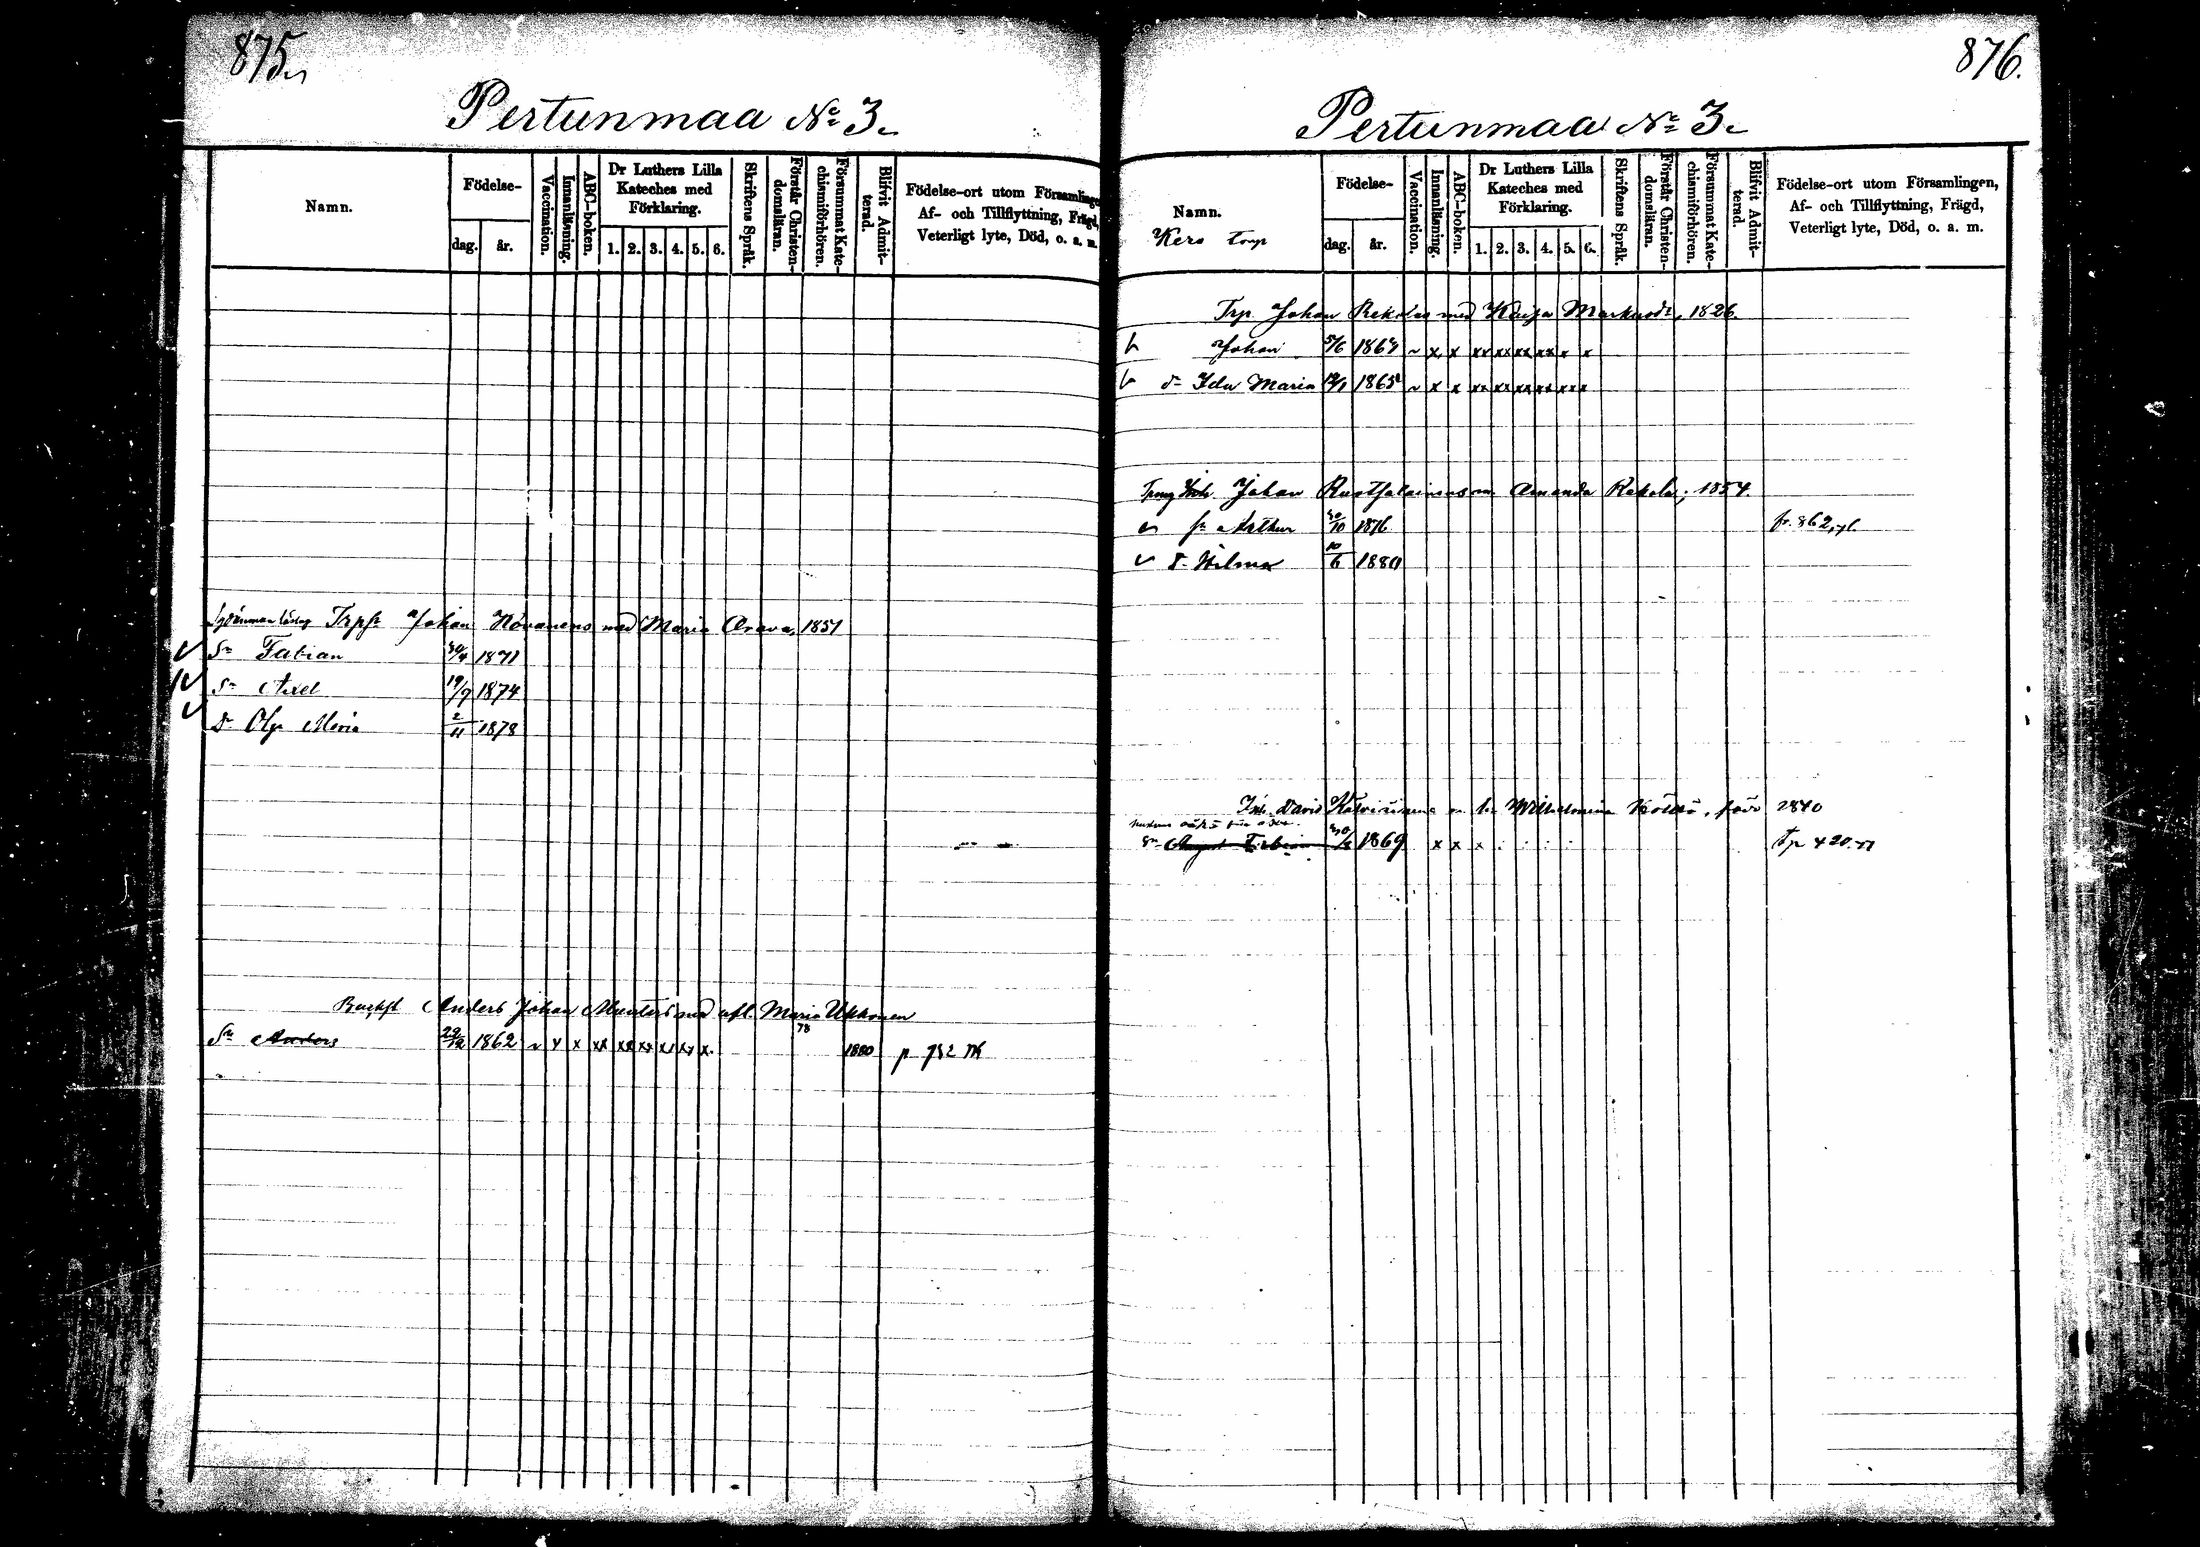 875
Pertunmaa № 3
Namn.
Födelse-
dag. år.
Vaccination.
Innanläsning.
ABC-boken.
Dr Luthers Lilla
Kateches med
Förklaring.
1. 2. 3. 4. 5. 6.
Skriftens Språk.
Förstår Christen-
domsläran.
Försummat Kate-
chismiförhören.
Blifvit Admit-
terad.
Födelse-ort utom Församlingen,
Af- och Tillflyttning, Frägd,
Veterligt lyte, Död, o. a. m.
Johan Hövanens med Maria Orava, 1851
Sn Fabian 30/4 1871
Sn Axel 19/9 1874
Dr Olga Maria 2/11 1878
Anders Johan med afl. Maria Ukkonen
78
Sn Anders 29/12 1862 x x xx xx xx xx xx x 1880 p 752
876.
Pertunmaa № 3
Namn.
Kero torp
Födelse-
dag. år.
Vaccination.
Innanläsning.
ABC-boken.
Dr Luthers Lilla
Kateches med
Förklaring.
1. 2. 3. 4. 5. 6.
Skriftens Språk.
Förstår Christen-
domsläran.
Försummat Kate-
chismiförhören.
Blifvit Admit-
terad.
Födelse-ort utom Församlingen,
Af- och Tillflyttning, Frägd,
Veterligt lyte, Död, o. a. m.
Trp. Johan Rekolas med Kaisa Markusdr, 1826.
Johan 5/6 186 x x xx xx xx xx x x
dr Ida Maria 1865 x x xx xx xx xx xx x
Johan Amanda Rekola, 1854
sn Arthur 30/10 1876 fr. 862,
d. Wilma 10/6 1880
Inh. David m. h. Wilhelmina 1840
Sn August Fabian 1869 x x x 420.